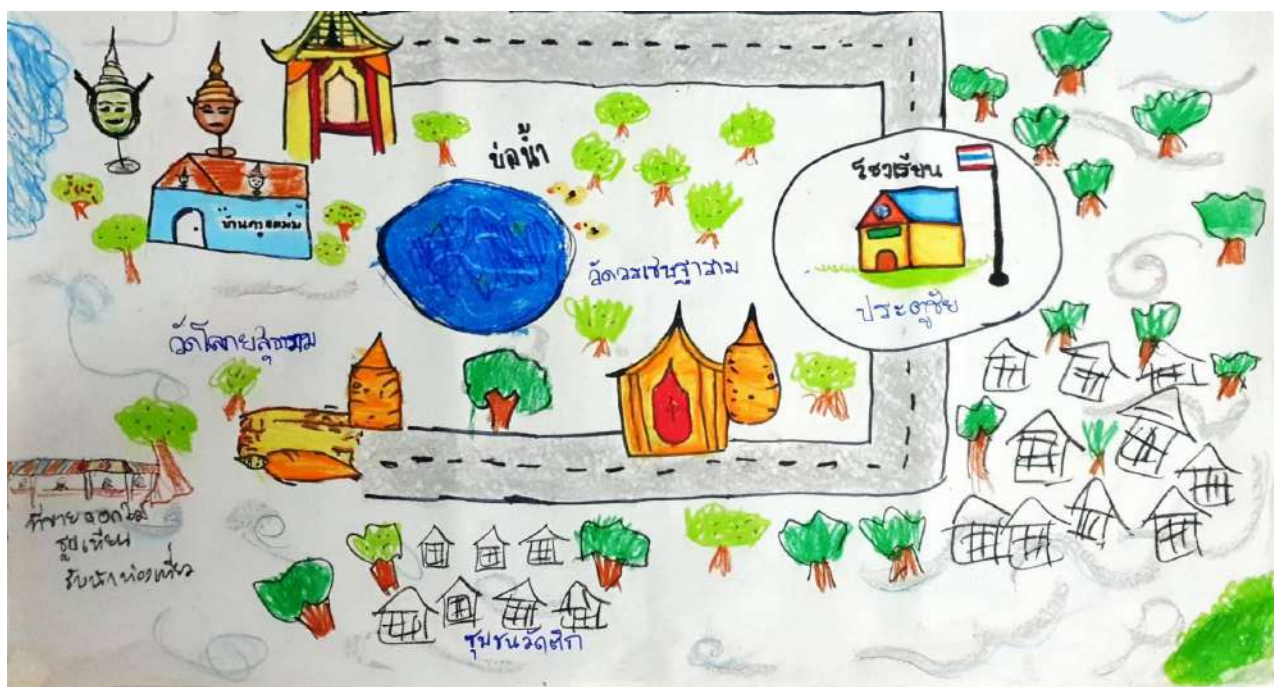 บ่อน้ำ
โรงเรียน
บ้านครูแม่ม
วัดวรเชษฐาราม
ประตูชัย
วัดโลกยสุธาราม
ที่ขายดอกไม้
ธูปเทียน
รับนักท่องเที่ยว
ชุมชนวัดตึก